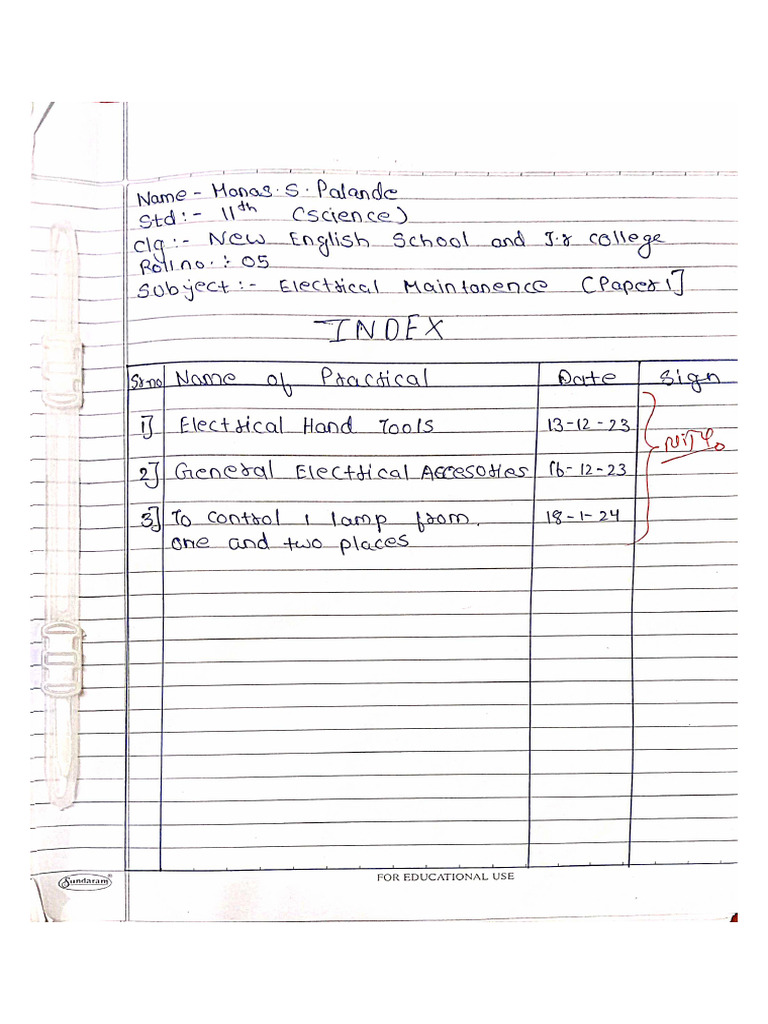 Name - Manas. S. Palande
Std :- 11th (Science)
Clg :- New English School and Jr college
Roll no. : 05
Subject :- Electrical Maintanence (Paper 1]
INDEX
Sr no Name of Practical Date Sign
1] Electrical Hand Tools 13-12-23
2] General Electrical Accesories 16-12-23
3] To control 1 lamp from 18-1-24
one and two places
Sundaram
FOR EDUCATIONAL USE